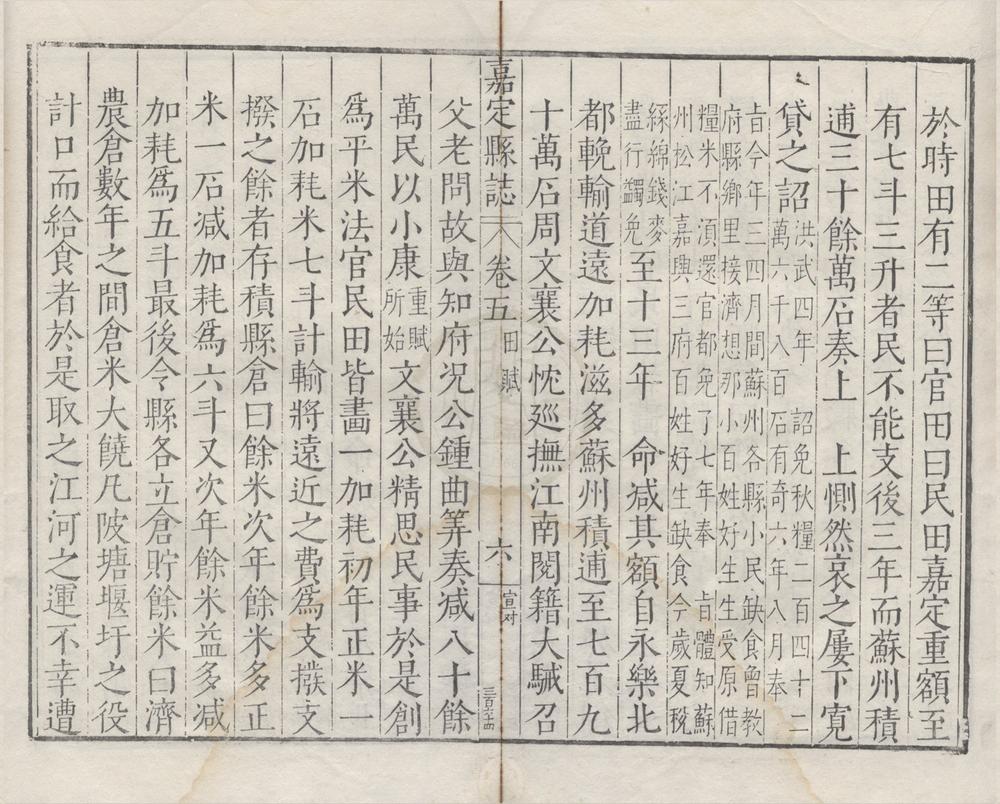 於時田有二等曰官田曰民田嘉定重額至
有七斗三升者民不能支後三年而蘇州積
逋三十餘萬石奏上　上惻然哀之屢下寬
貸之詔洪武四年　詔免秋糧二百四十二
萬六千八百石有奇六年八月奉
旨今年三四月間蘇州各縣小民缺食曾教
府縣鄉里接濟想那小百姓好生生受原借
糧米不須還官都免了七年奉　旨體知蘇
州松江嘉興三府百姓好生缺食今歲夏稅
絲綿錢麥
盡行蠲免至十三年　命减其額自永樂北
都輓輸道遠加耗滋多蘇州積逋至七百九
十萬石周文襄公忱廵撫江南閱籍大駴召
嘉定縣誌　卷五　田賦　六　宣对　三百三十四
父老問故與知府况公鍾曲筭奏减八十餘
萬民以小康重賦所始文襄公精思民事於是創
爲平米法官民田皆畫一加耗初年正米一
石加耗米七斗計輸將遠近之費爲支撥支
撥之餘者存積縣倉曰餘米次年餘米多正
米一石减加耗爲六斗又次年餘米益多减
加耗爲五斗最後令縣各立倉貯餘米曰濟
農倉數年之間倉米大饒凡陂塘堰圩之役
計口而給食者於是取之江河之運不幸遭